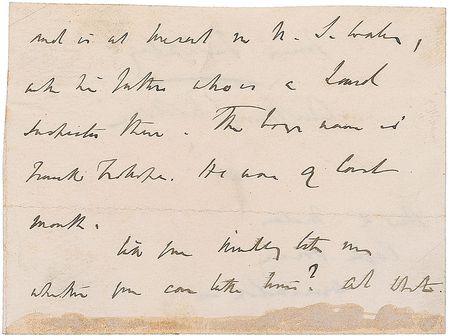 and is at present in N. S. Wales,
with his father who is a Land
Inspector there. The boys name is
Frank Trollope. He was 9 last
month.
Will you kindly tell me
whether you can take him? And